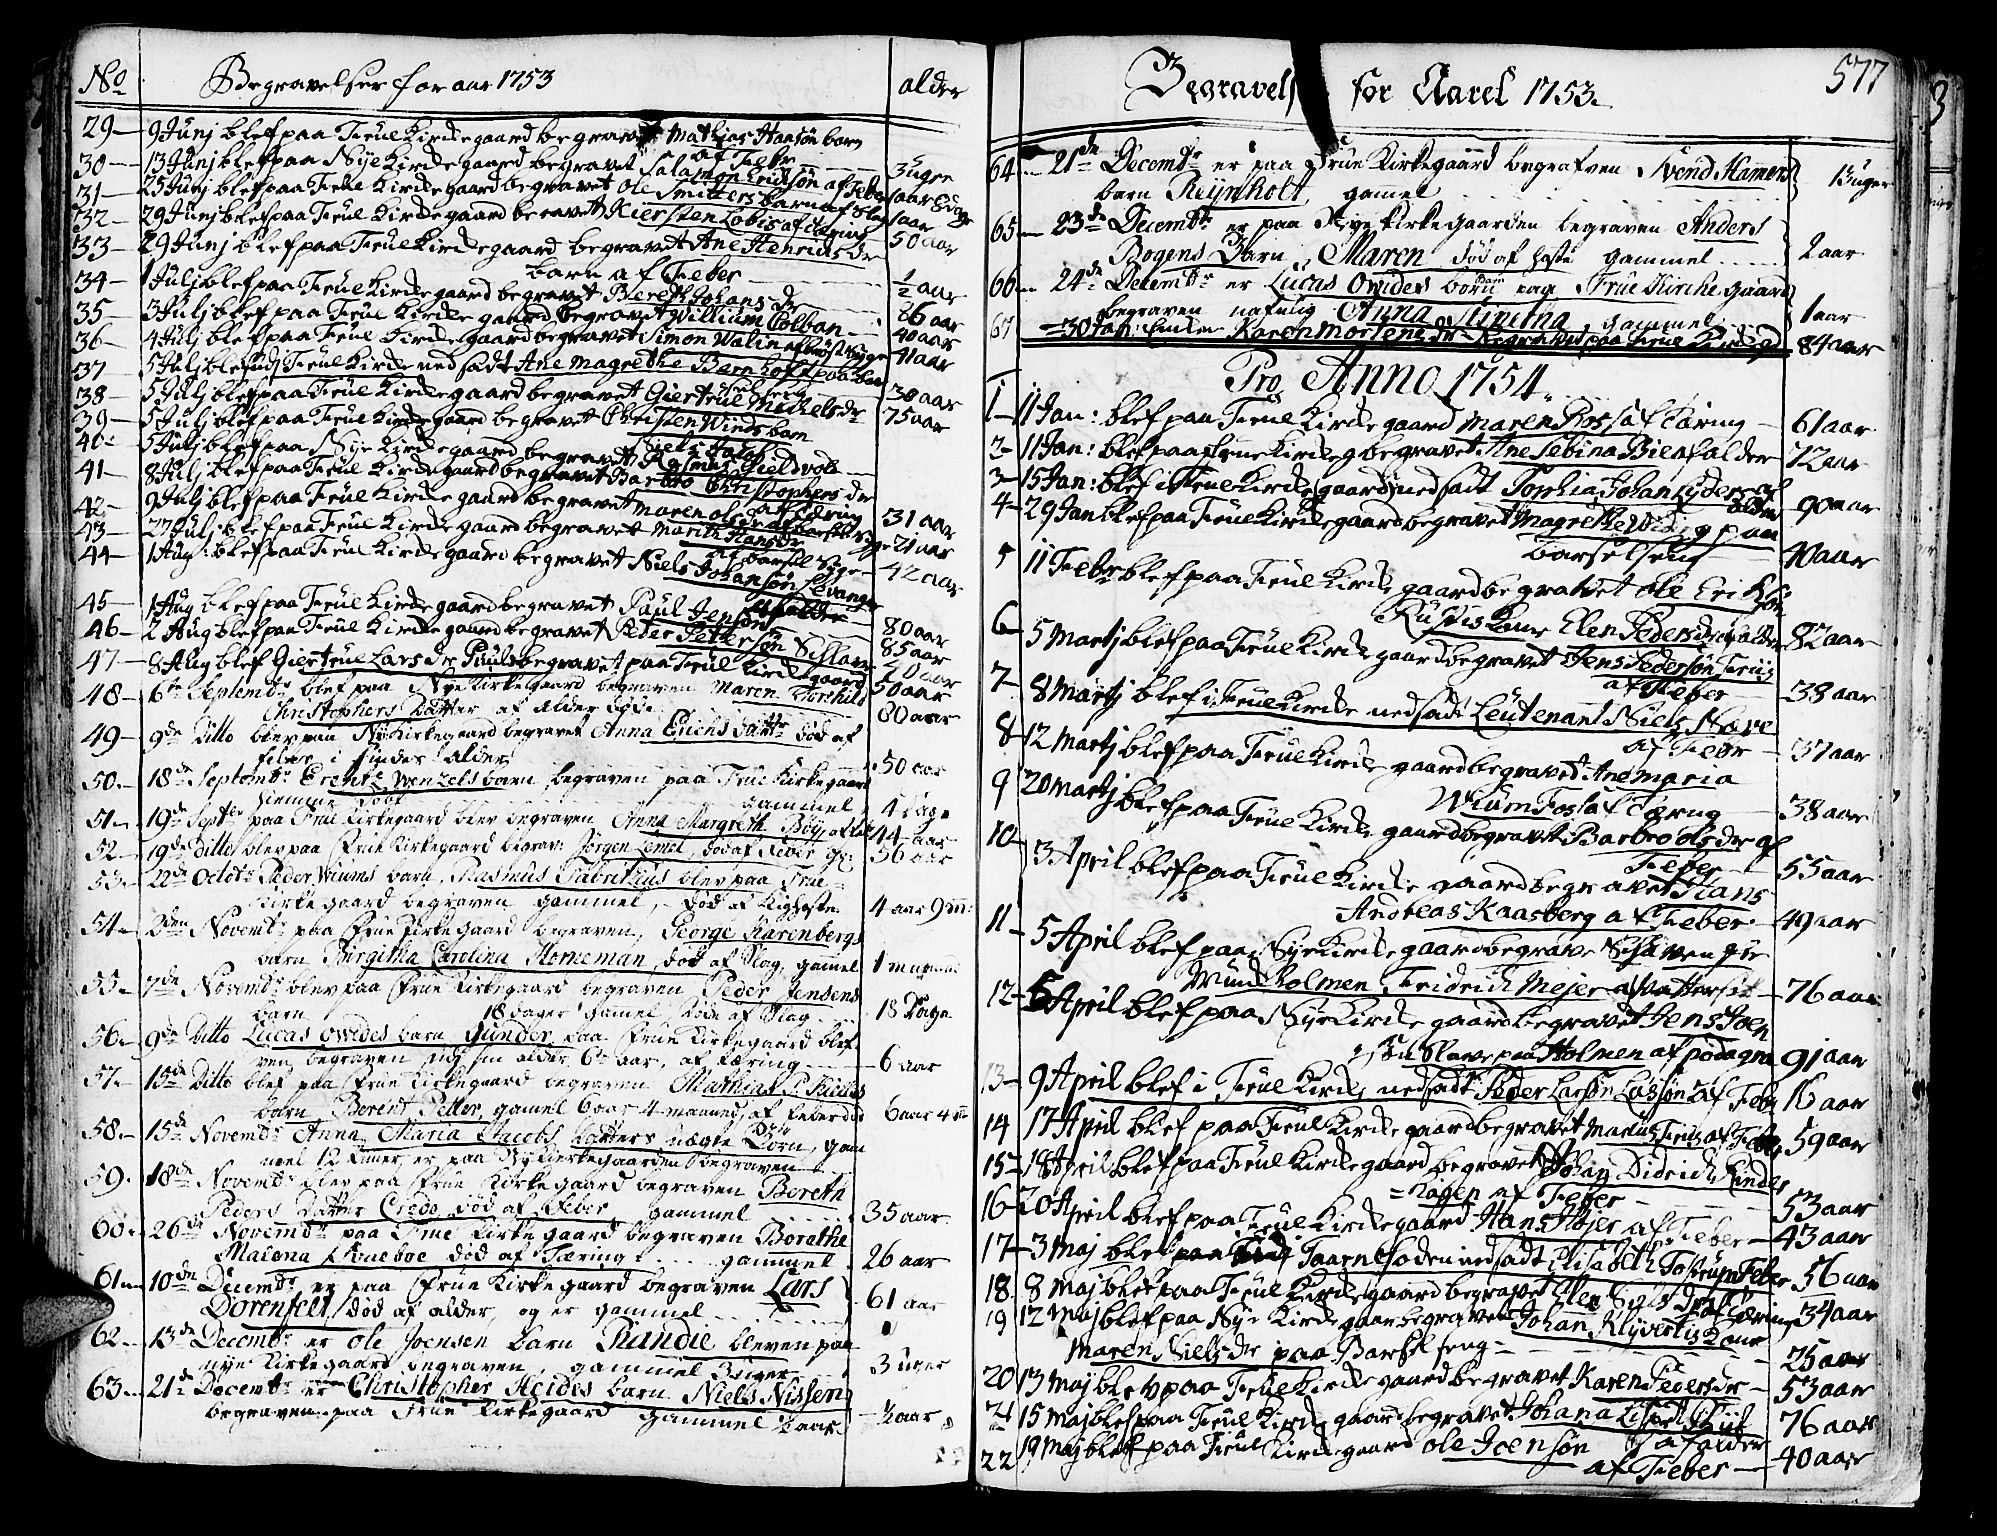 No Begravelser for aar 1753 alder
29 — 9 Junj blef paa Frue Kirkegaard begravet Mathias Hansøn barn
af Feber 3 uger
30 — 13 Junj blef paa Nye Kirkegaard begravet Salamon Erichsøn af Feber
31 — 25 Junj blef paa Frue Kirkegaard begravet Ole Smitters barn af Slag 1 aar
32 — 29 Junj blef paa Frue Kirkegaard begravet Kiersten Lobis af Tæring 50 aar
33 — 29 Junj blef paa Frue Kirkegaard begravet Ane Henrichs dr
barn af Feber ½ aar
34 — 1 Julj blef paa Frue Kirkegaard begravet Bereth Johans dr 86 aar
35 — 3 Julj blef paa Frue Kirkegaard begravet Willium Colban 40 aar
36 — 4 Julj blef paa Frue Kirkegaard begravet Simon Walin af bryst Syge 41 aar
37 — 5 Julj blef udj Frue Kirke nedsadt Ane Magrethe Bernhoft paa bar
sel seng 30 aar
38 — 5 Julj blef paa Frue Kirkegaard begravet Giertrue Michels dr 75 aar
39 — 5 Julj blef paa Frue Kirkegaard begravet Christen Winds barn
40 5 Julj blef paa Nye Kirkegaard begravet Niels Jacob
41 — 8 Julj blef paa Frue Kirkegaard begravet Barbro Christophers dr
af Tæring 31 aar
42 — 9 Julj blef paa Frue Kirkegaard begravet Maren Ols dr 21 aar
43 — 27 Julj blef paa Frue Kirkegaard begravet Marith Hans dr
af barsel Syge 42 aar
44 — 1 Aug: blef paa Frue Kirkegaard begravet Niels Johansøn Levanger
af alder 80 aar
45 — 1 Aug blef paa Frue Kirkegaard begravet Paul Jensøn 85 aar
46 — 2 Aug blef paa Frue Kirkegaard begravet Peter Pettersøn 40 aar
47 — 8 Aug blef Giertrue Lars dr Pauls begravet paa Frue Kirkegaard 50 aar
48 — 6te Septembr blef paa Nye Kirkegaard begraven Maren Torchild
Christophers datter af alder døde 80 aar
49 — 9de Ditto blev paa Ny Kirkegaard begravet Anna Erichs dattr død af
feber i hendes alder 50 aar
50. — 18de Septembr Erent Wenzels barn begraven paa Frue Kirkegaard
hiemme døbt gammel 4 Dage
51. — 19de Septbr paa Frue Kirkegaard blev begraven Anna Margreth Böÿ 44 aar
52 — 19de Ditto blev paa Frue Kirkegaard begrav: Jörgen Lemet, død af Feber gl: 56 aar
53. — 22de Octobr Peder Wiums barn, Rasmus Fabritius blev paa Frue
Kirkegaard begraven gammel, død af Kighoste 4 aar 9 m:
54. — 3den Novembr paa Frue Kirkegaard begraven, George Karenbergs
barn Birgitha Carolina Horneman, død af Slag, gamel 1 maaned
55. — 7de Novembr blev paa Frue Kirkegaard begraven Peder Jensens
barn 18 dager gamel døde af Slag 18 Dage
56. — 9de Ditto Lucas Owides barn Gunder paa Frue Kirkegaard blef
ven begraven udj sin alder 6te Aar, af Tæring 6 aar
57. — 15de Ditto blef paa Frue Kirkegaard begraven Mathias
barn Berent Petter, gamel 6 aar 4 maaned, af feber død 6 aar 4 m
58. — 15de Novembr Anna Maria Jacobs datters uægte Börn, gam
mel 12 timer er paa Nykirkegaarden begraven
59. — 18de Novembr blev paa Frue Kirkegaard begraven Bereth
Peders datter Credo, død af Feber gammel 35 aar
60. 26de Novembr paa Frue Kirkegaard begraven Borethe
Malena Strueboe død af Tæring gammel 26 aar
61 — 10de Decembr er paa Frue Kirkegaard begraven Lars
Dorenfelt, død af alder, og er gammel 61 aar
62 — 13de Decembr er Ole Joensen barn Randie bleven paa
nye Kirkegaard begraven, gammel 3 uger 3 uger
63 — 21de Decembr er Christopher Heides barn Niels Nissen
begraven paa Frue Kirkegaard gammel ½ aar ½ aar
577
Begravels for Aaret 1753.
64 — 21de Decembr er paa Frue Kirkegaard begrafven Svend Hammers
barn Reÿnholt gamel 13 uger
65 — 23de Decembr er paa Nye Kirkegaarden begraven Anders
Bogens Barn, Maren død af hoste gammel 2 aar
66 — 24de Decembr er Lucas Owides barn paa Frue Kirchegaard
begraven nafnlig Anna Stintna, gammel 1 aar
67 — 30 Karen Mortens dr Begravet paa Frue Kirkegd 84 aar
Pro Anno 1754.
1 — 11 Jan: blef paa Frue Kirkegaard Maren Ross af Tæring 61 aar
2 — 11 Jan: blef paa Frue Kirkeg begravet Ane Sebina Bie af alder 72 aar
3 — 15 Jan: blef i Frue Kirkegaard nedsadt Sophia Johan Lyders af
alder 90 aar
4 — 29 Jan blef paa Frue Kirkegaard begravet Magrethe Wiing paa
barsel seng 40 aar
5 11 Febr blef paa Frue Kirkegaard begravet Ole Erichsøn
6 Kone Elen Peders dr af alder 82 aar
5 Martj blef paa Frue Kirkegaard begravet Jens Pedersøn
af Feber 38 aar
7 — 8 Martj blef i Frue Kirke nedsadt Leutenant Niels Næve
af Feber 37 aar
8 — 12 Martj blef paa Frue Kirkegaard begravet Ane Maria
Wium Fos af Tæring 38 aar
9 20 Martj blef paa Frue Kirkegaard begravet Barbro Ols dr af
Feber 55 aar
10 — 3 April blef paa Frue Kirkegaard begravet Hans
Andreas Kaasberg af Feber 49 aar
11 — 5 April blef paa Nye Kirkegaard begrave Slaven
Holmen Fridrich Mejer af Vattersot 76 aar
12 — 6 April blef paa Nye Kirkegaard begravet Jens Joen
En Slave paa Holmen af podagra 91 aar
13 — 9 April blef i Frue Kirke nedsadt Peder Larsøn Lassøn af Feb 16 aar
14 17 April blef paa Frue Kirkegaard begravet Marius Friis af Feber 59 aar
15 — 18 April blef paa Frue Kirkegaard begravet Johan Didrich Kindes
Hagen af Feber 53 aar
16 — 20 April blef paa Frue Kirkegaard Hans Højer af Feber 43 aar
17 — 3 Maj blef Taarnefoden nedsadt Elisabeth Tostrup Feber 56 aar
18. 8 Maj blef paa Frue Kirkegaard begravet Elen Niels dr af Tæring 34 aar
19 12 Maj blef paa Nye Kirkegaar begravet Johan Klÿvertis Kone
Maren Niels dr paa Barsel seng 25 aar
20 13 Maj blev paa Frue Kirkegaard begravet Karen Peders dr 53 aar
21 15 Maj blef paa Frue Kirkegaard begravet Johana Lisbet
af alder 76 aar
22 19 Maj blef paa Frue Kirkegaard Ole Joensøn
af Feber 40 aar